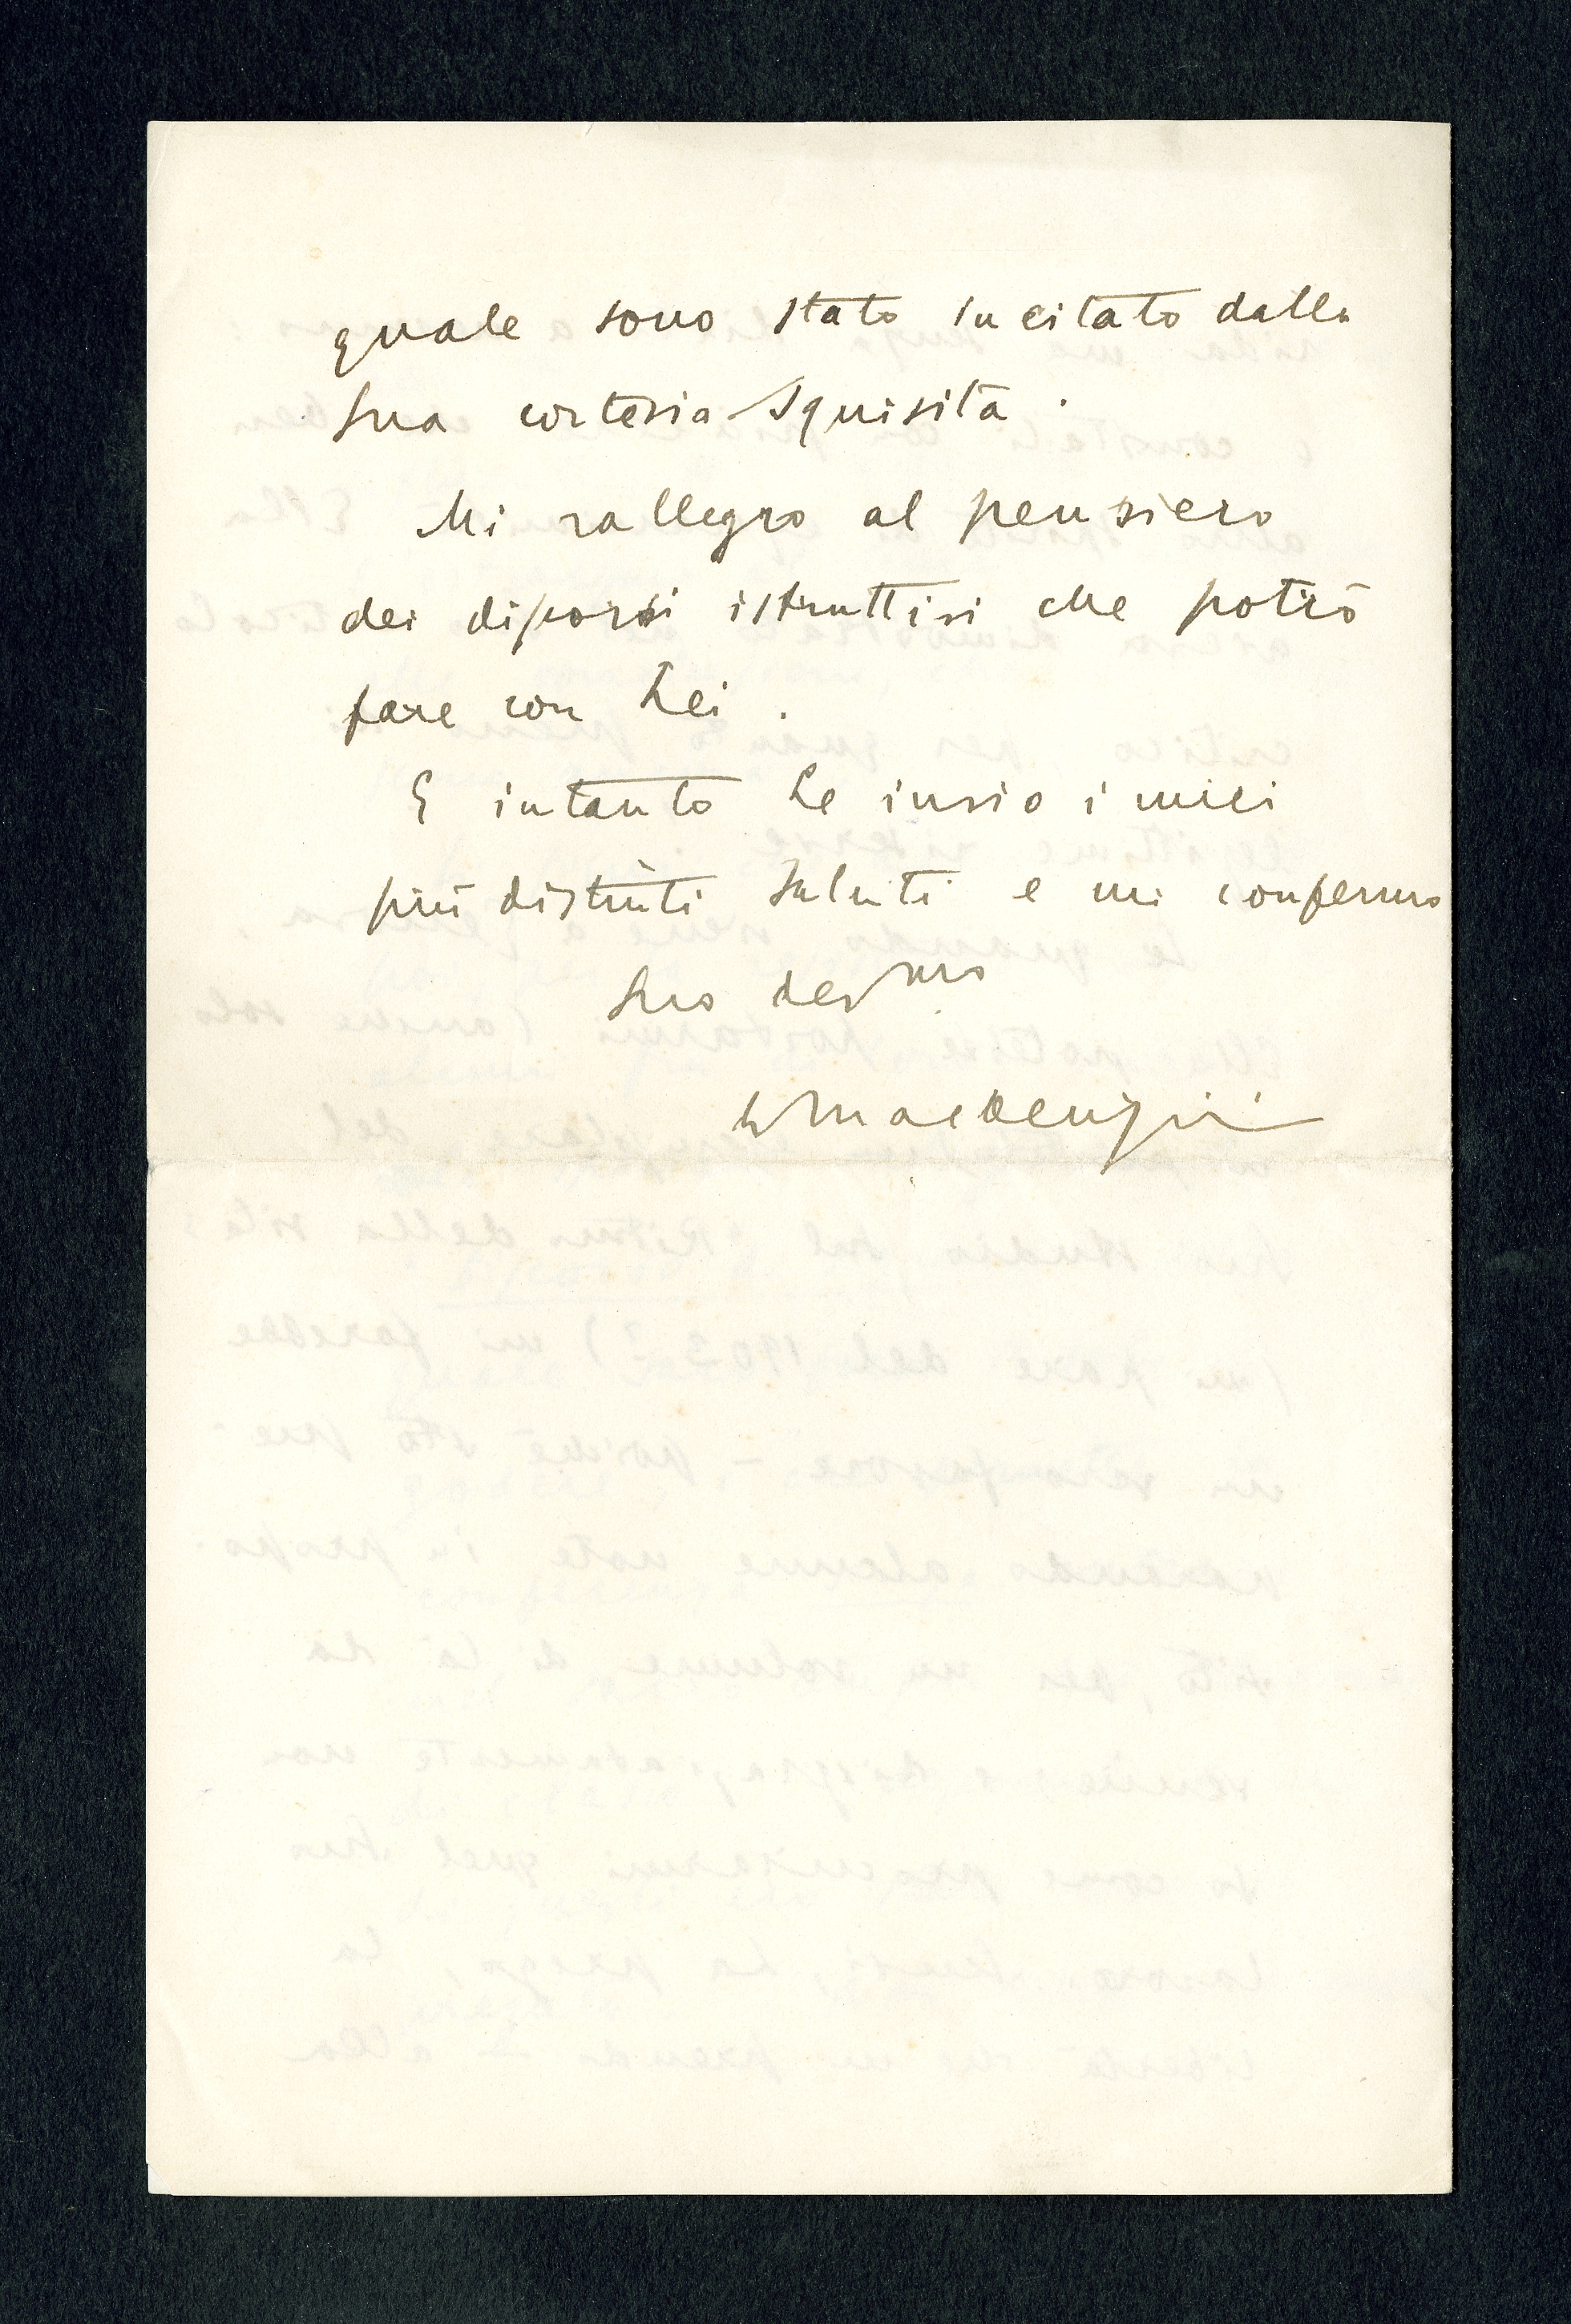 quale sono stato incitato dalla
Sua cortesia squisita.
Mi rallegro al pensiero
dei discorsi istruttivi che potrò
fare con Lei.
E intanto Le invio i miei
più distinti saluti e mi confermo
Suo dev mo
W Mackenzie